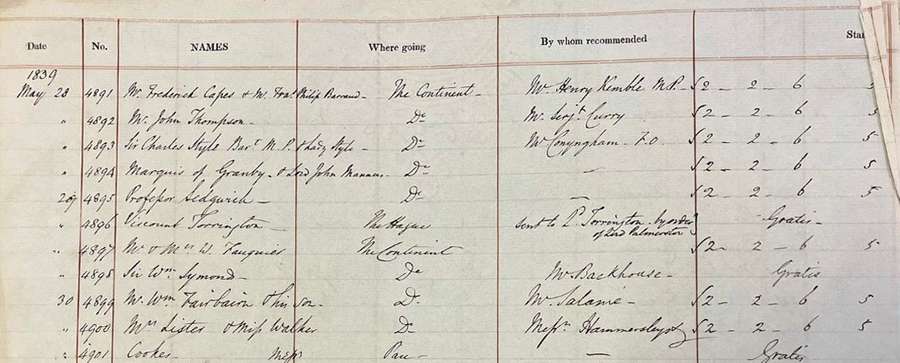 Date No. NAMES Where going By whom recommended Sta
1839
May 28 4891 Mr. Frederick Capes & Mr. Fras. Philip Barraud - The Continent - Mr Henry Kemble M.P. - £2 - 2 - 6 5
" 4892 Mr. John Thompson - Do Mr. Serjt. Curry £2 - 2 - 6 5
" 4893 Sir Charles Style Bart. M.P. & Lady Style - Do Mr Conyngham F.O. £2 - 2 - 6 5
" 4894 Marquis of Granby - & Lord John Manners - Do - £2 - 2 - 6 5
29 4895 Professor Sedgwick - Do - £2 - 2 - 6 5
" 4896 Viscount Torrington - The Hague sent to Ld Torrington by order of Lord Palmerston Gratis -
" 4897 Mr & Mrs W. Fauquier The Continent £2 - 2 - 6 5
" 4898 Sir Wm. Symond - Do Mr. Backhouse - Gratis
30 4899 Mr. Wm Fairbairn & his son - Do Mr. Salamé - £2 - 2 - 6 5
" 4900 Mrs Lister & Miss Walker Do Messrs. Hammersleys £2 - 2 - 6 5
" 4901 Cookes - Messr Pau - - Gratis